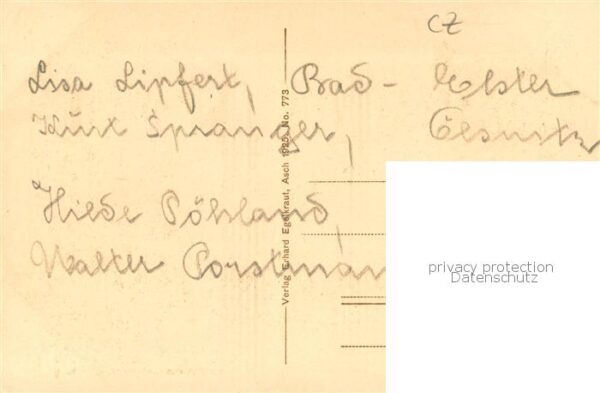 CZ
Lisa Lipfert, Bad-Elster
Kurt Spranger, Oelsnitz
Hilde Pöhland,
Walter Porstman
Verlag Erhard Egelkraut, Asch 1925, No. 773
privacy protection
Datenschutz